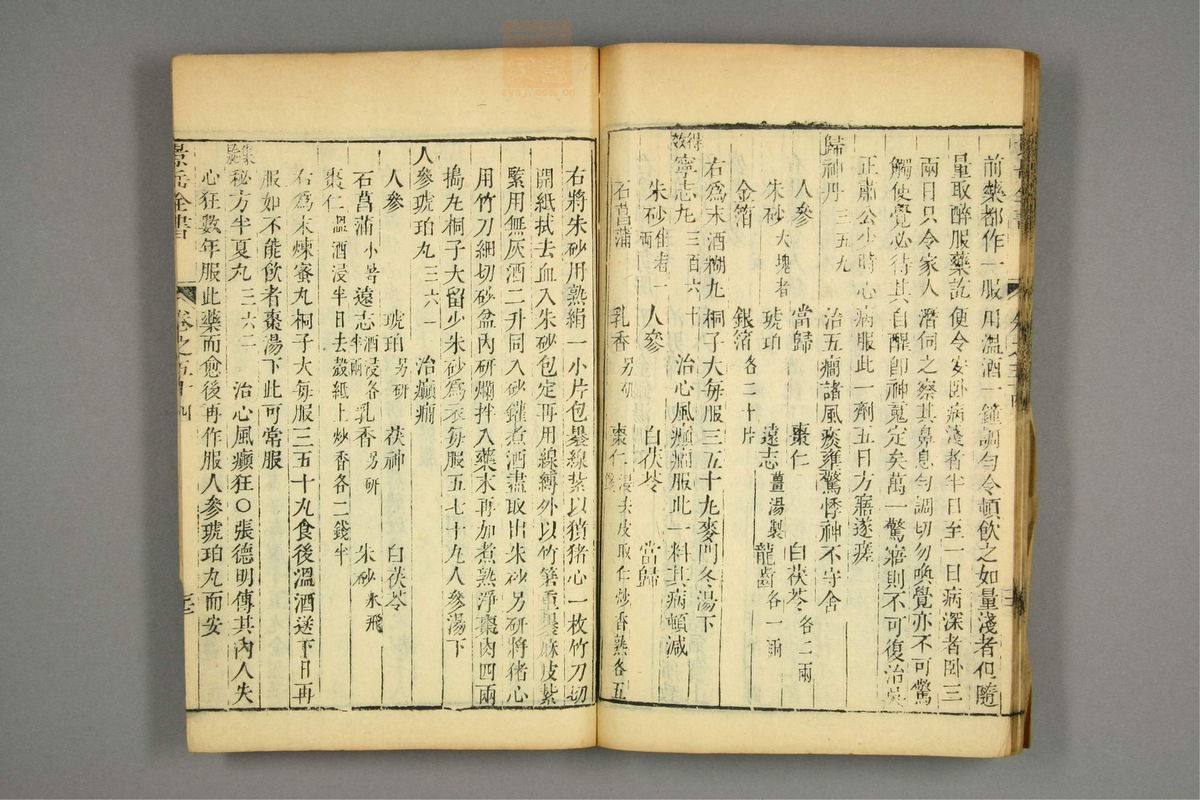 前藥都作一服用溫酒一鍾調勻令頓飲之如量淺者但隨
量取醉服藥訖便令安卧病淺者半日至一日病深者卧三
兩日只令家人潛伺之察其鼻息勻調切勿喚覺亦不可驚
觸使覺必待其自醒卽神䰟定矣萬一驚寤則不可復治吳
正肅公少時心病服此一劑五日方寤遂瘥
歸神丹 三五九 治五癎諸風痰壅驚悸神不守舍
人參 當歸 棗仁 白茯苓各二兩
朱砂大塊者 琥珀 遠志薑湯製 龍齒各一兩
金箔 銀箔各二十片
右爲末酒糊丸桐子大每服三五十丸麥門冬湯下
得效
寧志丸 三百六十 治心風癲癎服此一料其病頓減
朱砂佳者一兩 人參 白茯苓 當歸
石菖蒲 乳香另研 棗仁浸去皮取仁炒香熟各五錢
右將朱砂用熟絹一小片包褁線紮以獖猪心一枚竹刀切
開紙拭去血入朱砂包定再用線縛外以竹箬重褁麻皮紮
緊用無灰酒二升同入砂鑵煮酒盡取出朱砂另研將猪心
用竹刀細切砂盆內研爛拌入藥末再加煮熟淨棗肉四兩
搗丸桐子大留少朱砂爲衣每服五七十丸人參湯下
人參琥珀丸 三六一 治癲癎
人參 琥珀另研 茯神 白茯苓
石菖蒲小者 遠志酒浸各半兩 乳香另研 朱砂水飛
棗仁溫酒浸半日去殼紙上炒香各二錢半
右爲末煉蜜丸桐子大每服三五十丸食後溫酒送下日再
服如不能飲者棗湯下此可常服
集驗
秘方半夏丸 三六二 治心風癲狂○張德明傳其內人失
心狂數年服此藥而愈後再作服人參琥珀丸而安
景岳全書 卷之五十四